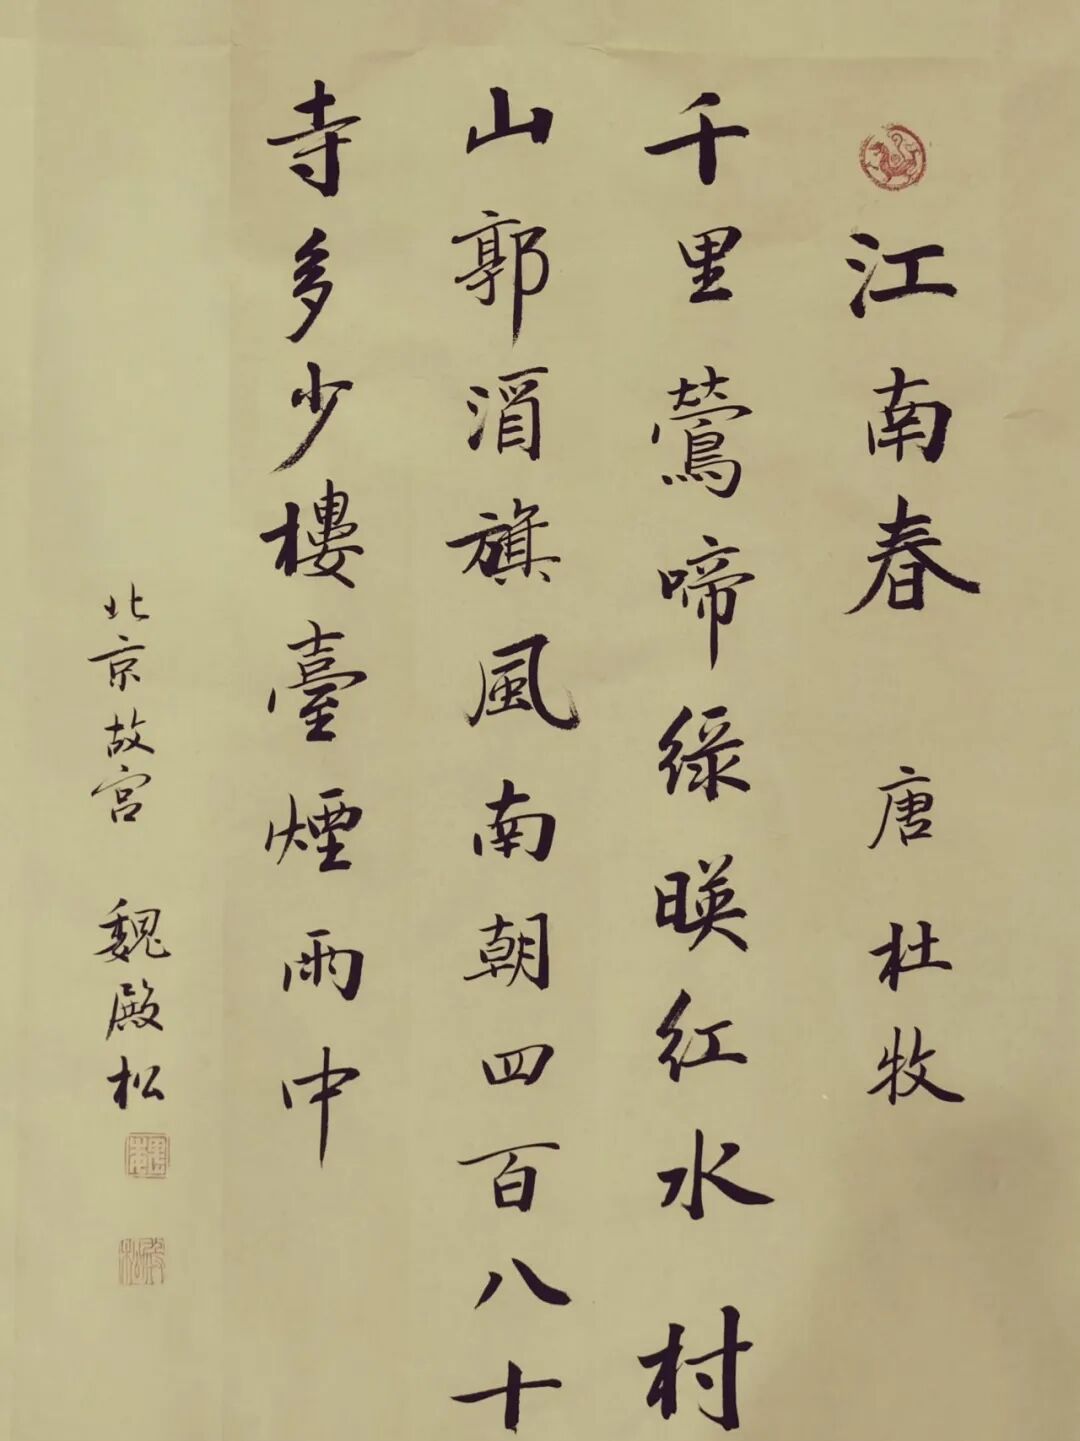 江南春 唐 杜牧
千里鶯啼綠暎紅水村
山郭酒旗風南朝四百八十
寺多少樓臺煙雨中
北京故宮 魏殿松
殿松